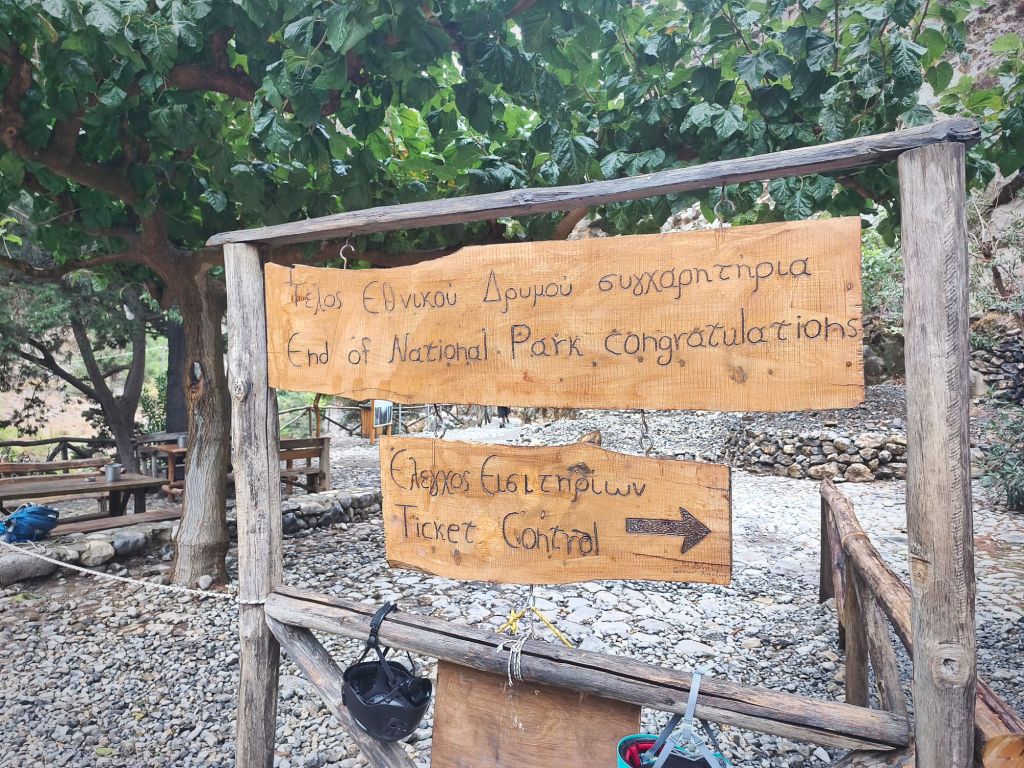 Τέλος Εθνικού Δρυμού συγχαρητήρια
End of National Park congratulations
Ελεγχος Εισιτήριων
Ticket Control